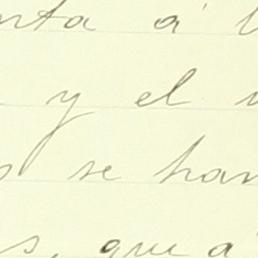 nta á
y el
s se han
s, que á